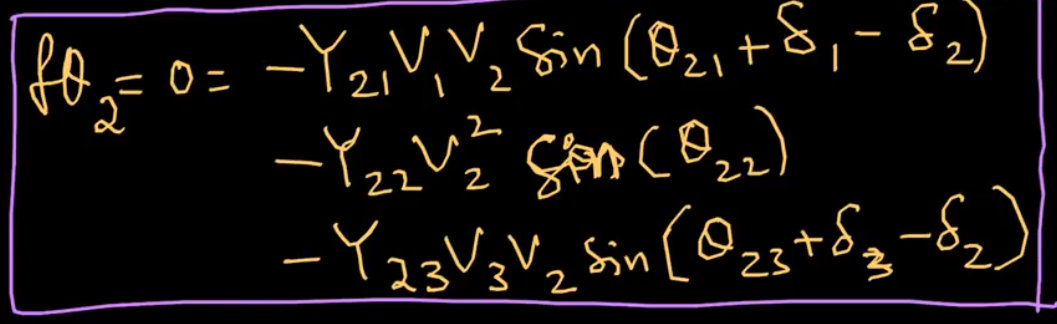 fθ₂ = 0 = -Y₂₁V₁V₂ Sin (θ₂₁ + δ₁ - δ₂)
-Y₂₂V₂² Sin (θ₂₂)
-Y₂₃V₃V₂ Sin (θ₂₃ + δ₃ - δ₂)